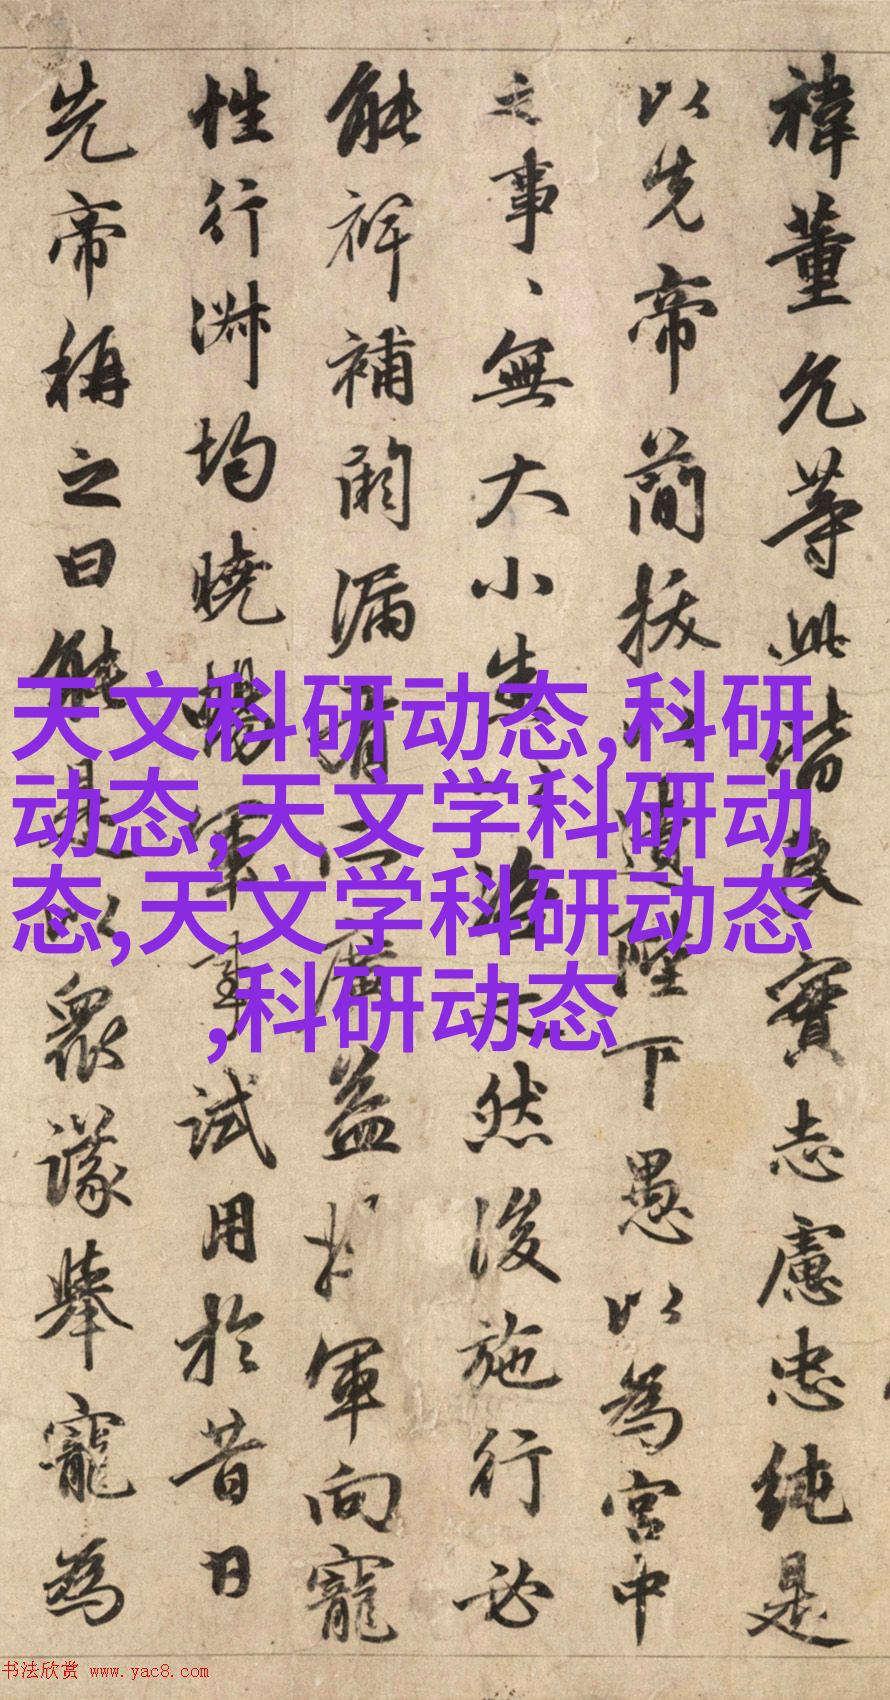 禕董允等此皆良實志慮忠純是
以先帝簡拔以遺陛下愚以為宮中
之事、無大小悉以咨之然後施行必
能裨補闕漏有所廣益将軍向寵
性行淋均曉暢軍事試用於昔日
先帝稱之曰能是以衆議舉寵為
天文科研动态,科研
动态,天文学科研动
态,天文学科研动态
,科研动态
书法欣赏 www.yac8.com